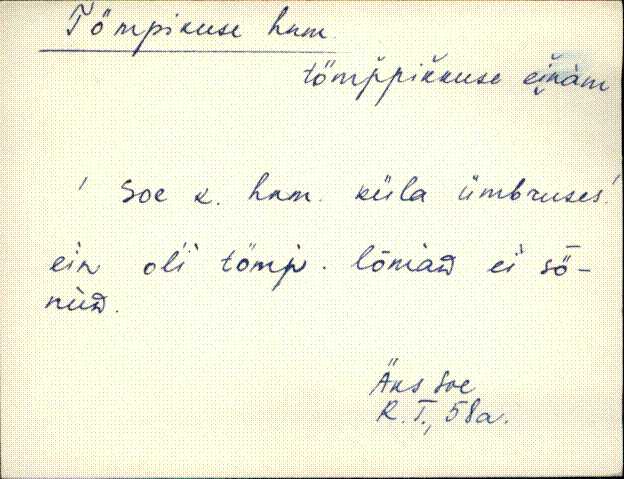 Tömpikuse hnm.
tömp̆pik̆kuse ein̆äm
' Soe k. hnm. küla ümbruses.'
ein oĺi tömp. lōmaD ei sȫ-
nüD.
Äks Soe
R. T., 58a.